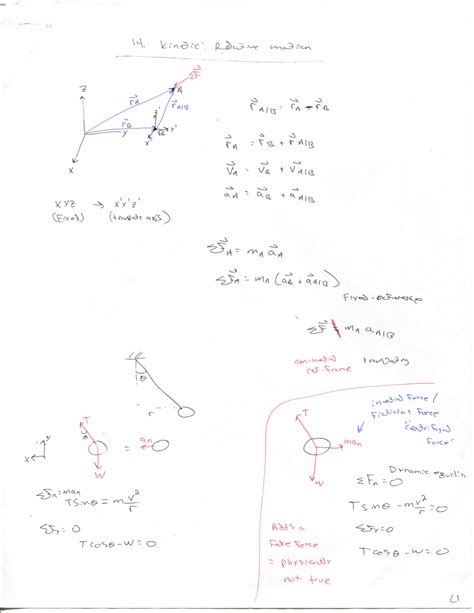 14. Kinetic: Relative motion
ΣF⃗
Z
A
r⃗A
r⃗A|B
z'
r⃗B
Y
B
y'
x'
X
r⃗A|B = r⃗A - r⃗B
r⃗A = r⃗B + r⃗A|B
v⃗A = v⃗B + v⃗A|B
a⃗A = a⃗B + a⃗A|B
XYZ → x'y'z'
(Fixed) (translate axis)
ΣF⃗A = mA a⃗A
ΣF⃗A = mA (a⃗B + a⃗A|B)
Fixed-reference
ΣF⃗ ≠ mA aA|B
non-inertial translating
ref. frame
θ
r
y
x
T
θ
W
=
an
ΣFn = man
Tsinθ = m v²/r
ΣFy = 0
Tcosθ-W = 0
inertial Force/
Fictitious Force
centrifugal
Force
T
man
W
Dynamic equilib
ΣFn = 0
Tsinθ - m v²/r = 0
ΣFy = 0
Tcosθ-W = 0
Adds a
Fake Force
= physically
not true